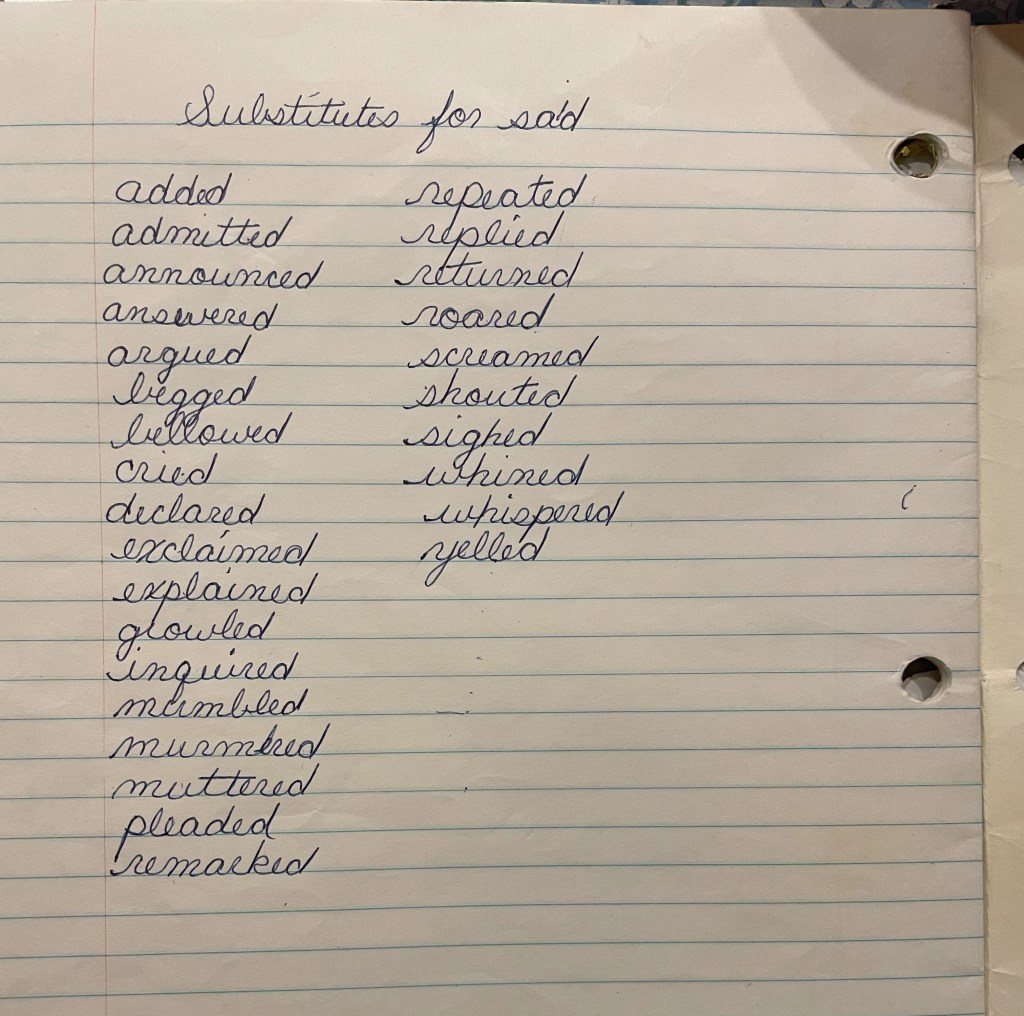 Substitutes for said
added
admitted
announced
answered
argued
begged
bellowed
cried
declared
exclaimed
explained
growled
inquired
mumbled
murmured
muttered
pleaded
remarked
repeated
replied
returned
roared
screamed
shouted
sighed
whined
whispered
yelled